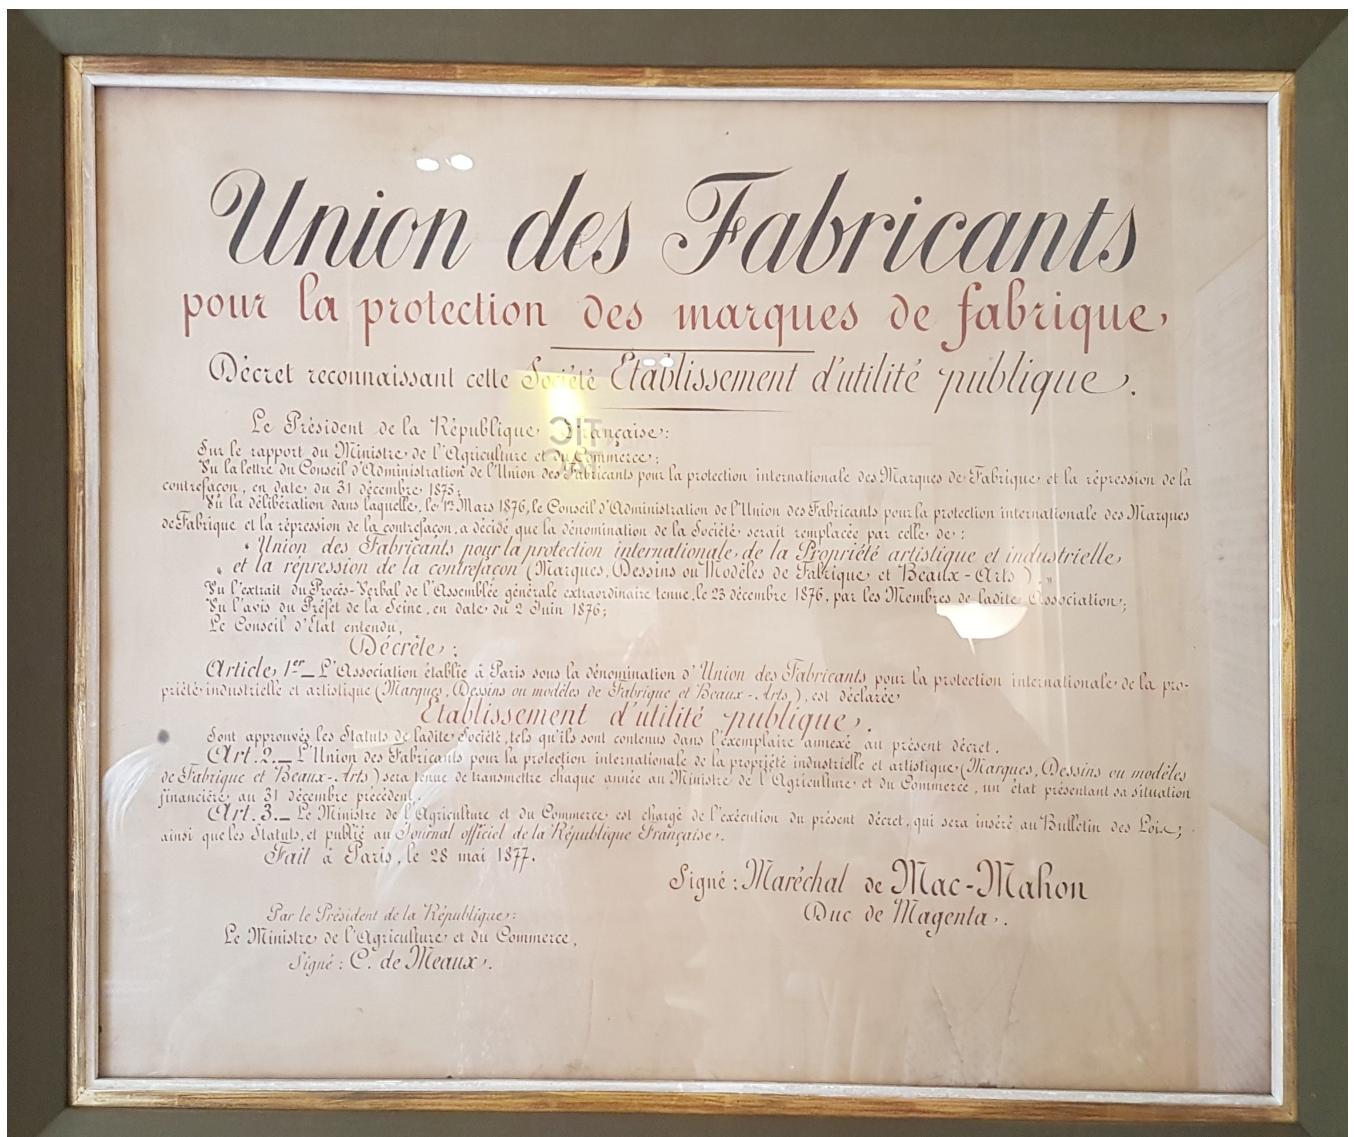 Union des Fabricants
pour la protection des marques de fabrique,
Décret reconnaissant cette Société Etablissement d'utilité publique.
Le Président de la République Française:
Sur le rapport du Ministre de l'Agriculture et du Commerce;
Vu la lettre du Conseil d'Administration de l'Union des Fabricants pour la protection internationale des Marques de Fabrique et la répression de la
contrefaçon, en date du 31 décembre 1875;
Vu la délibération dans laquelle, le 1er Mars 1876, le Conseil d'Administration de l'Union des Fabricants pour la protection internationale des Marques
de Fabrique et la répression de la contrefaçon, a décidé que la dénomination de la Société serait remplacée par celle de:
"Union des Fabricants pour la protection internationale de la Propriété artistique et industrielle,
" et la répression de la contrefaçon (Marques, Dessins ou Modèles de Fabrique et Beaux-Arts)."
Vu l'extrait du Procès-Verbal de l'Assemblée générale extraordinaire tenue, le 23 décembre 1876, par les Membres de ladite Association;
Vu l'avis du Préfet de la Seine, en date du 2 Juin 1876;
Le Conseil d'Etat entendu,
Décrète:
Article 1er_ L'Association établie à Paris sous la dénomination d'Union des Fabricants pour la protection internationale de la pro-
priété industrielle et artistique (Marques, Dessins ou modèles de Fabrique et Beaux-Arts), est déclarée
Etablissement d'utilité publique.
Sont approuvés les Statuts de ladite Société, tels qu'ils sont contenus dans l'exemplaire annexé au présent décret.
Art. 2._ L'Union des Fabricants pour la protection internationale de la propriété industrielle et artistique (Marques, Dessins ou modèles
de Fabrique et Beaux-Arts) sera tenue de transmettre chaque année au Ministre de l'Agriculture et du Commerce, un état présentant sa situation
financière au 31 décembre précédent.
Art. 3._ Le Ministre de l'Agriculture et du Commerce est chargé de l'exécution du présent décret, qui sera inséré au Bulletin des Lois,
ainsi que les Statuts, et publié au Journal officiel de la République Française.
Fait à Paris, le 28 mai 1877.
Signé: Maréchal de Mac-Mahon
Duc de Magenta.
Par le Président de la République:
Le Ministre de l'Agriculture et du Commerce,
Signé: C. de Meaux.